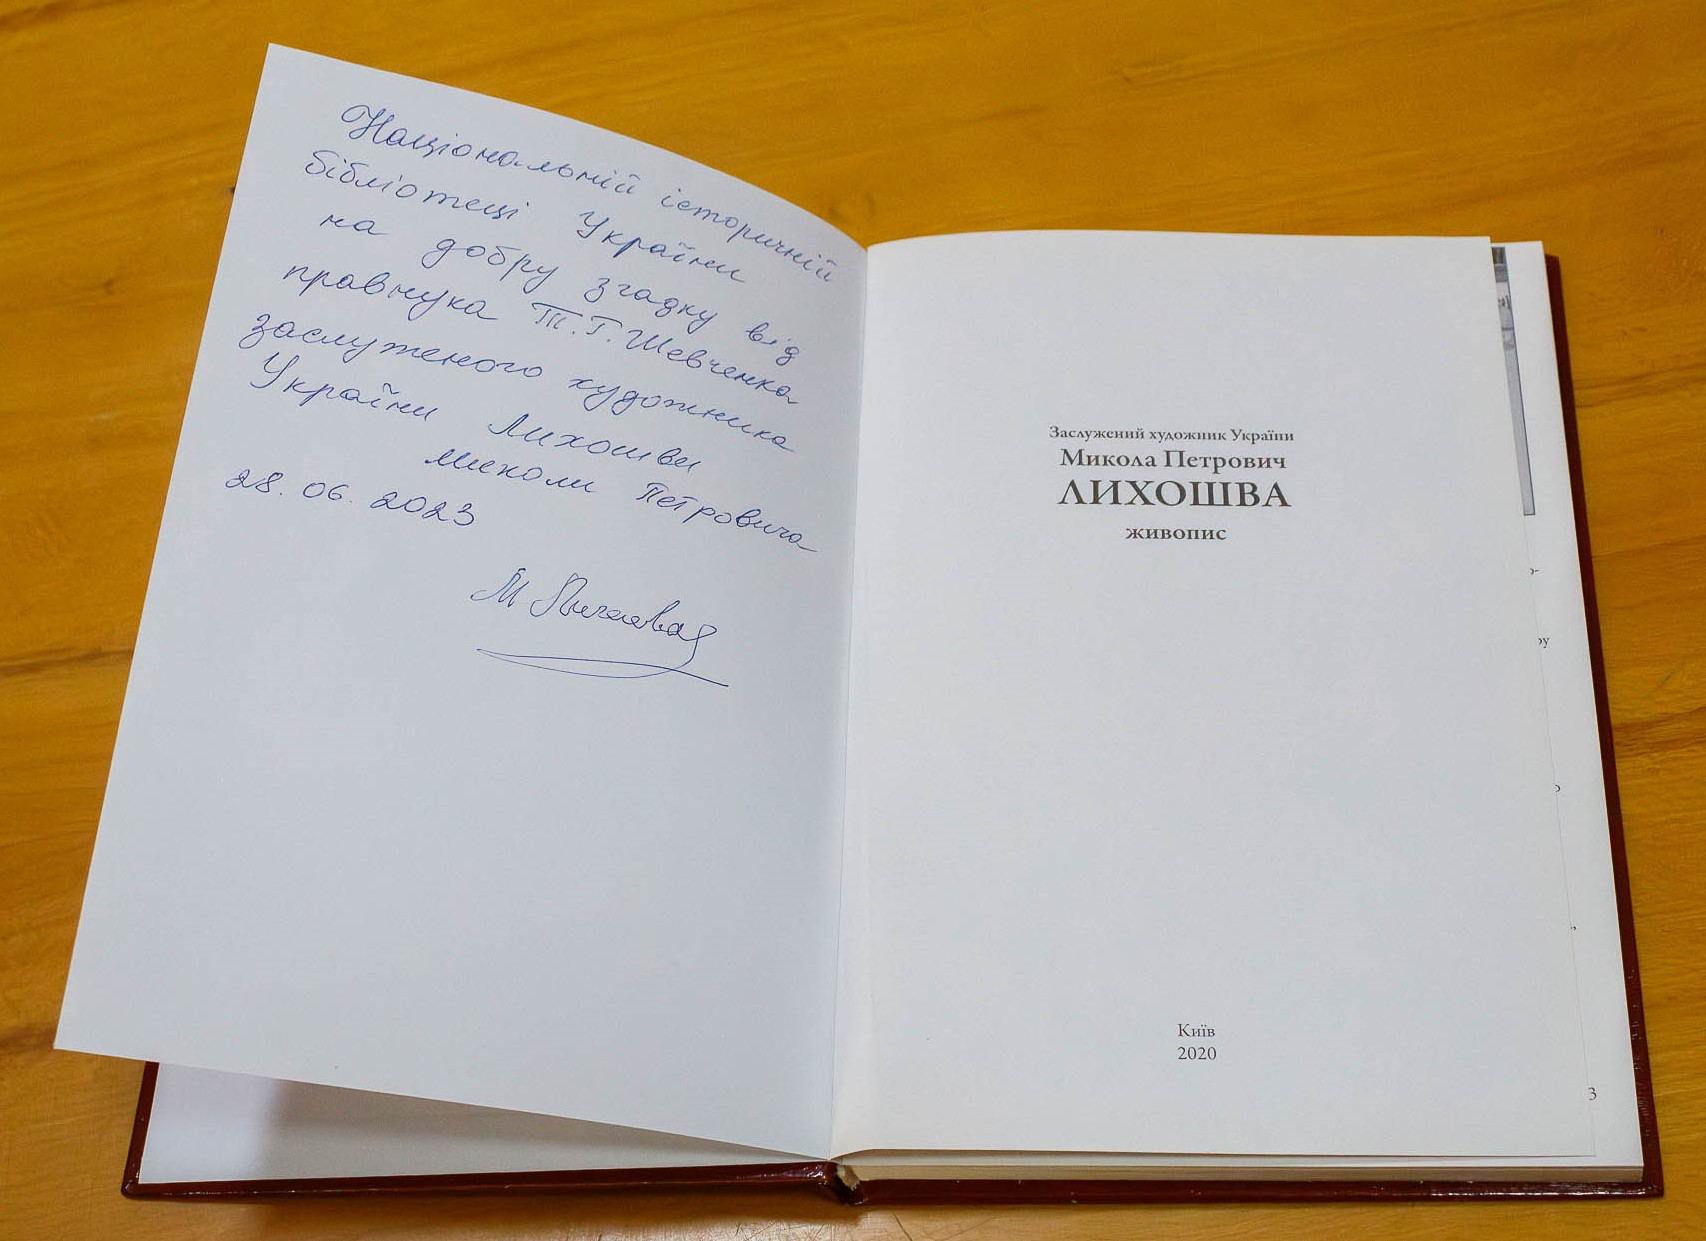 Національній історичній
бібліотеці України
на добру згадку від
правнука Т.Г.Шевченка
заслуженого художника
України Лихошви
Миколи Петровича
28.06.2023
М Лихошва
Заслужений художник України
Микола Петрович
ЛИХОШВА
живопис
Київ
2020
ру
3